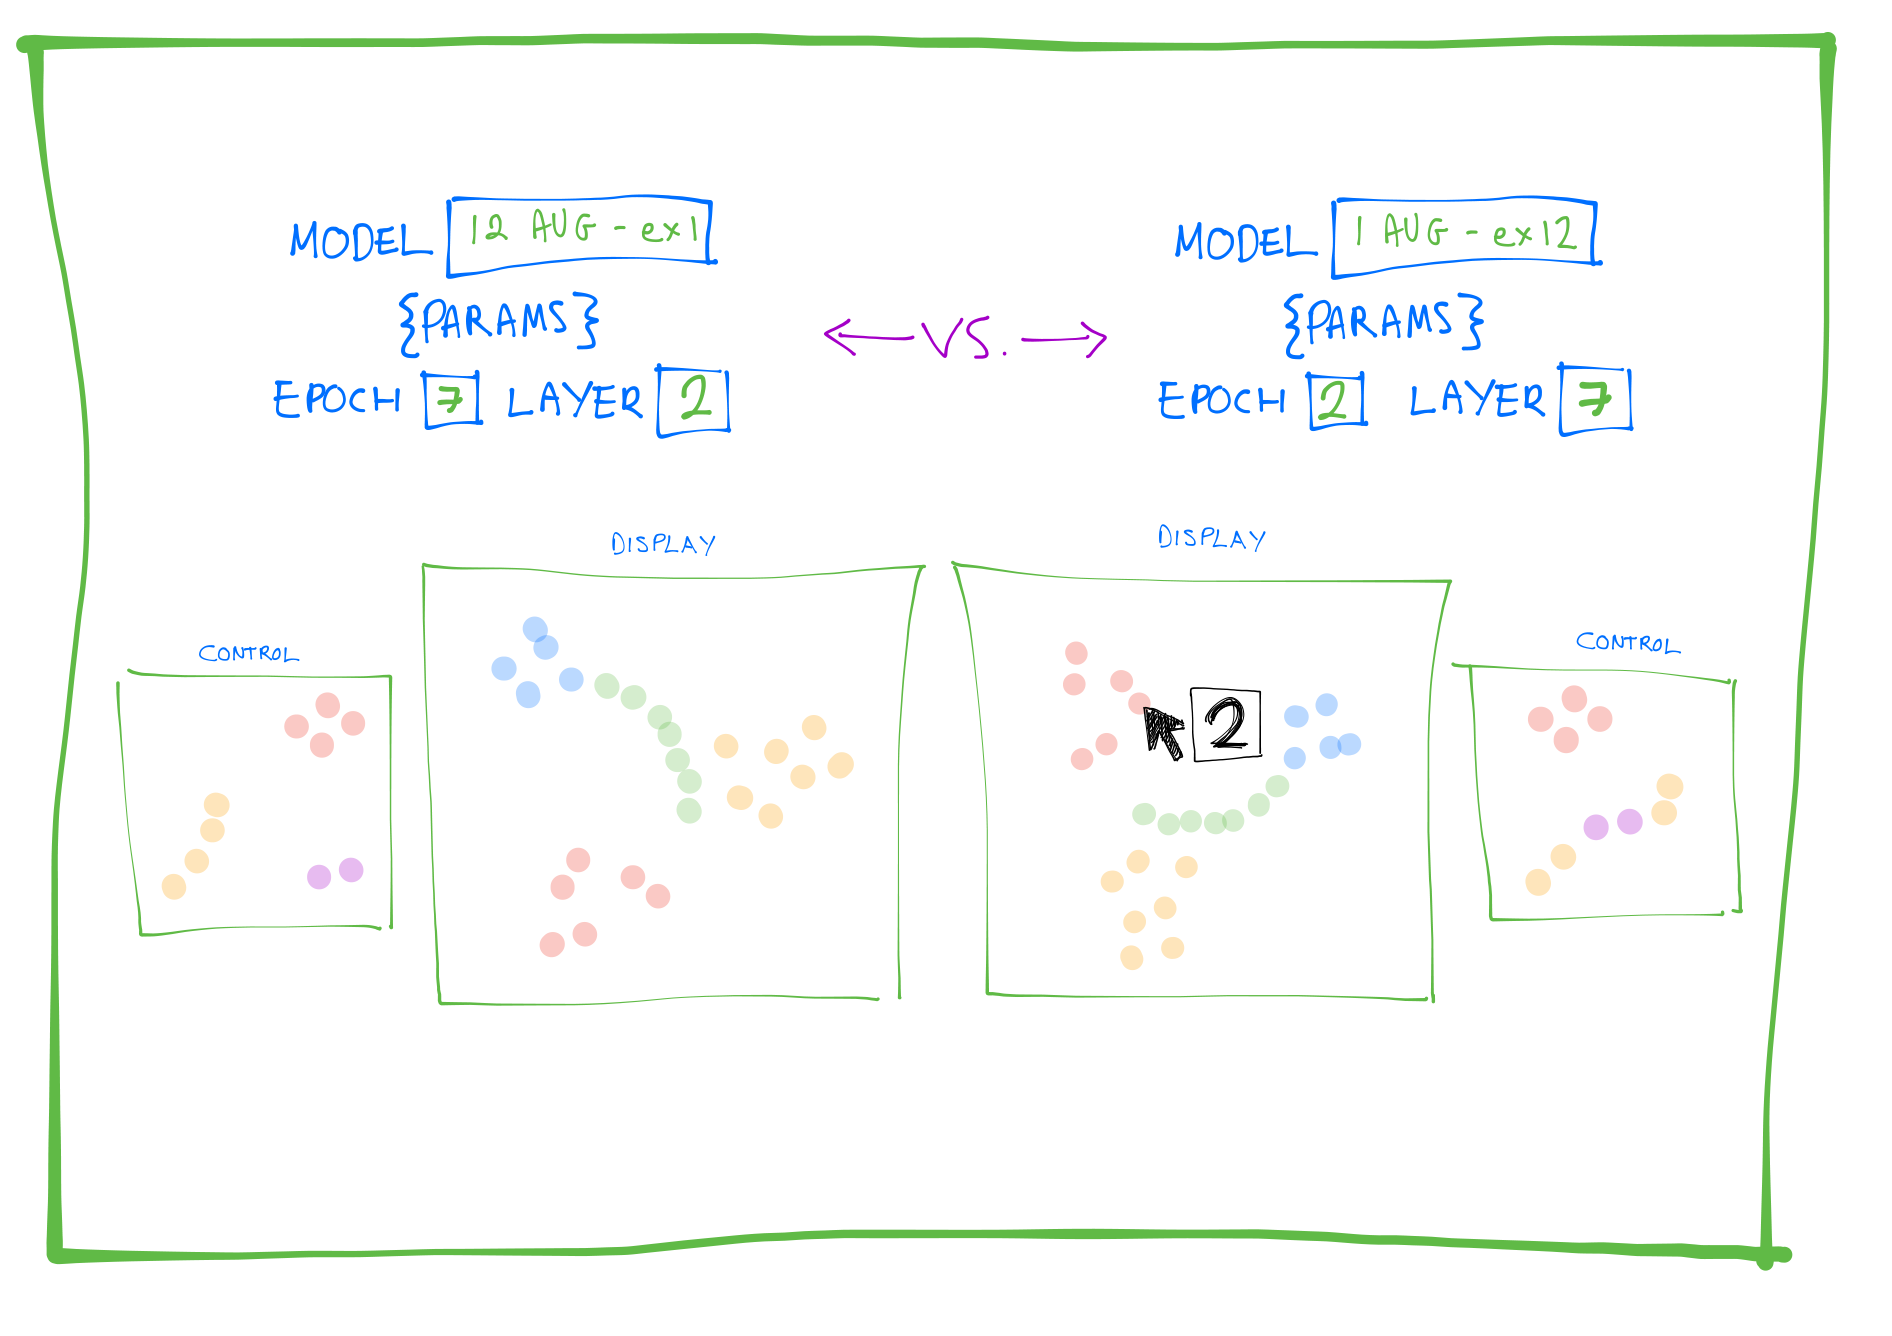 MODEL 12 AUG - ex1
{PARAMS}
EPOCH 7 LAYER 2
← VS. →
MODEL 1 AUG - ex12
{PARAMS}
EPOCH 2 LAYER 7
CONTROL
DISPLAY
DISPLAY
2
CONTROL